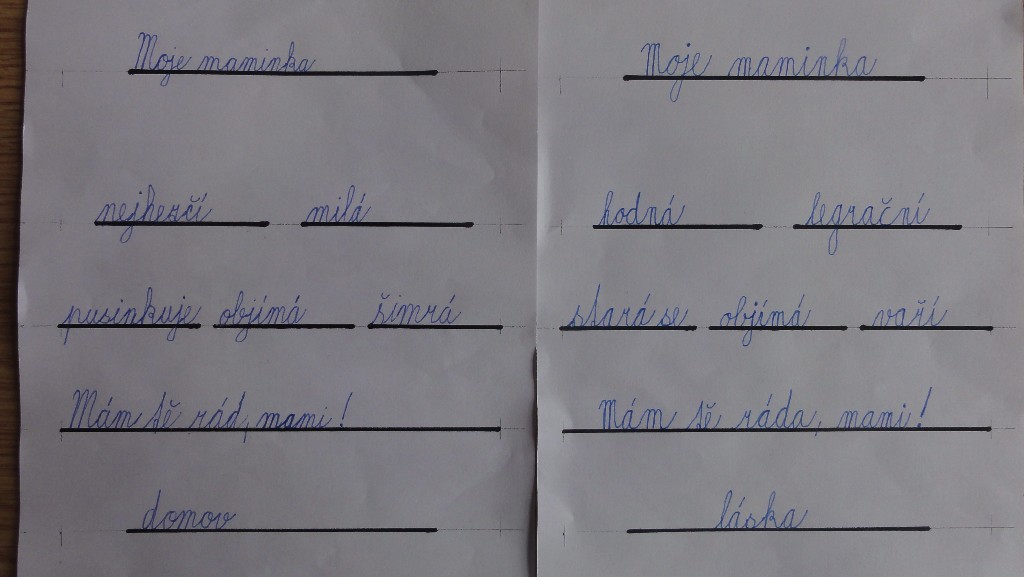 Moje maminka
nejhezčí milá
pusinkuje objímá šimrá
Mám tě rád, mami!
domov
Moje maminka
hodná legrační
stará se objímá vaří
Mám tě ráda, mami!
láska